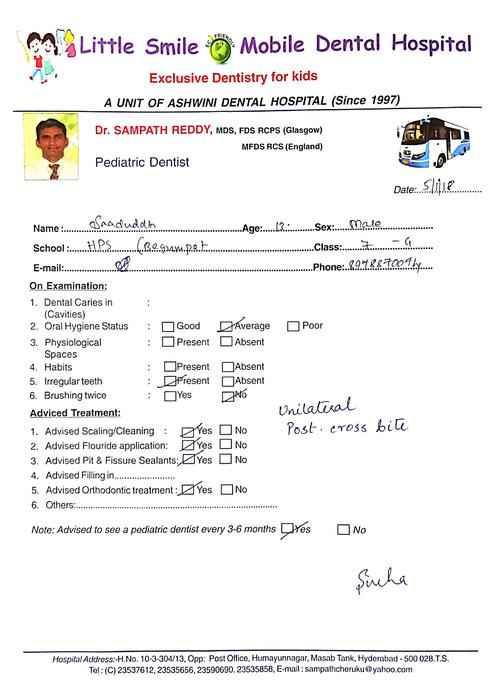 Little Smile Mobile Dental Hospital
ECO FRIENDLY
Exclusive Dentistry for kids
A UNIT OF ASHWINI DENTAL HOSPITAL (Since 1997)
Dr. SAMPATH REDDY, MDS, FDS RCPS (Glasgow)
MFDS RCS (England)
Pediatric Dentist
Date: 5/1/18
Name : Age: 12. Sex: Male
School : HPS Class: 7 - G
E-mail: Phone:
On Examination:
1. Dental Caries in :
(Cavities)
2. Oral Hygiene Status : Good Average Poor
3. Physiological : Present Absent
Spaces
4. Habits : Present Absent
5. Irregular teeth : Present Absent
6. Brushing twice : Yes No
Adviced Treatment:
Unilateral
Post. cross bite
1. Advised Scaling/Cleaning : Yes No
2. Advised Flouride application: Yes No
3. Advised Pit & Fissure Sealants: Yes No
4. Advised Filling in......................
5. Advised Orthodontic treatment : Yes No
6. Others:..............................................................
Note: Advised to see a pediatric dentist every 3-6 months Yes No
Hospital Address:-H.No. 10-3-304/13, Opp: Post Office, Humayunnagar, Masab Tank, Hyderabad - 500 028.T.S.
Tel : (C) 23537612, 23535656, 23590690. 23535858, E-mail : sampathcheruku@yahoo.com